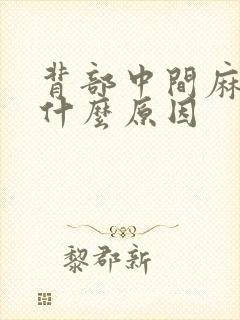 背部中間麻
什麼原因
黎郡新